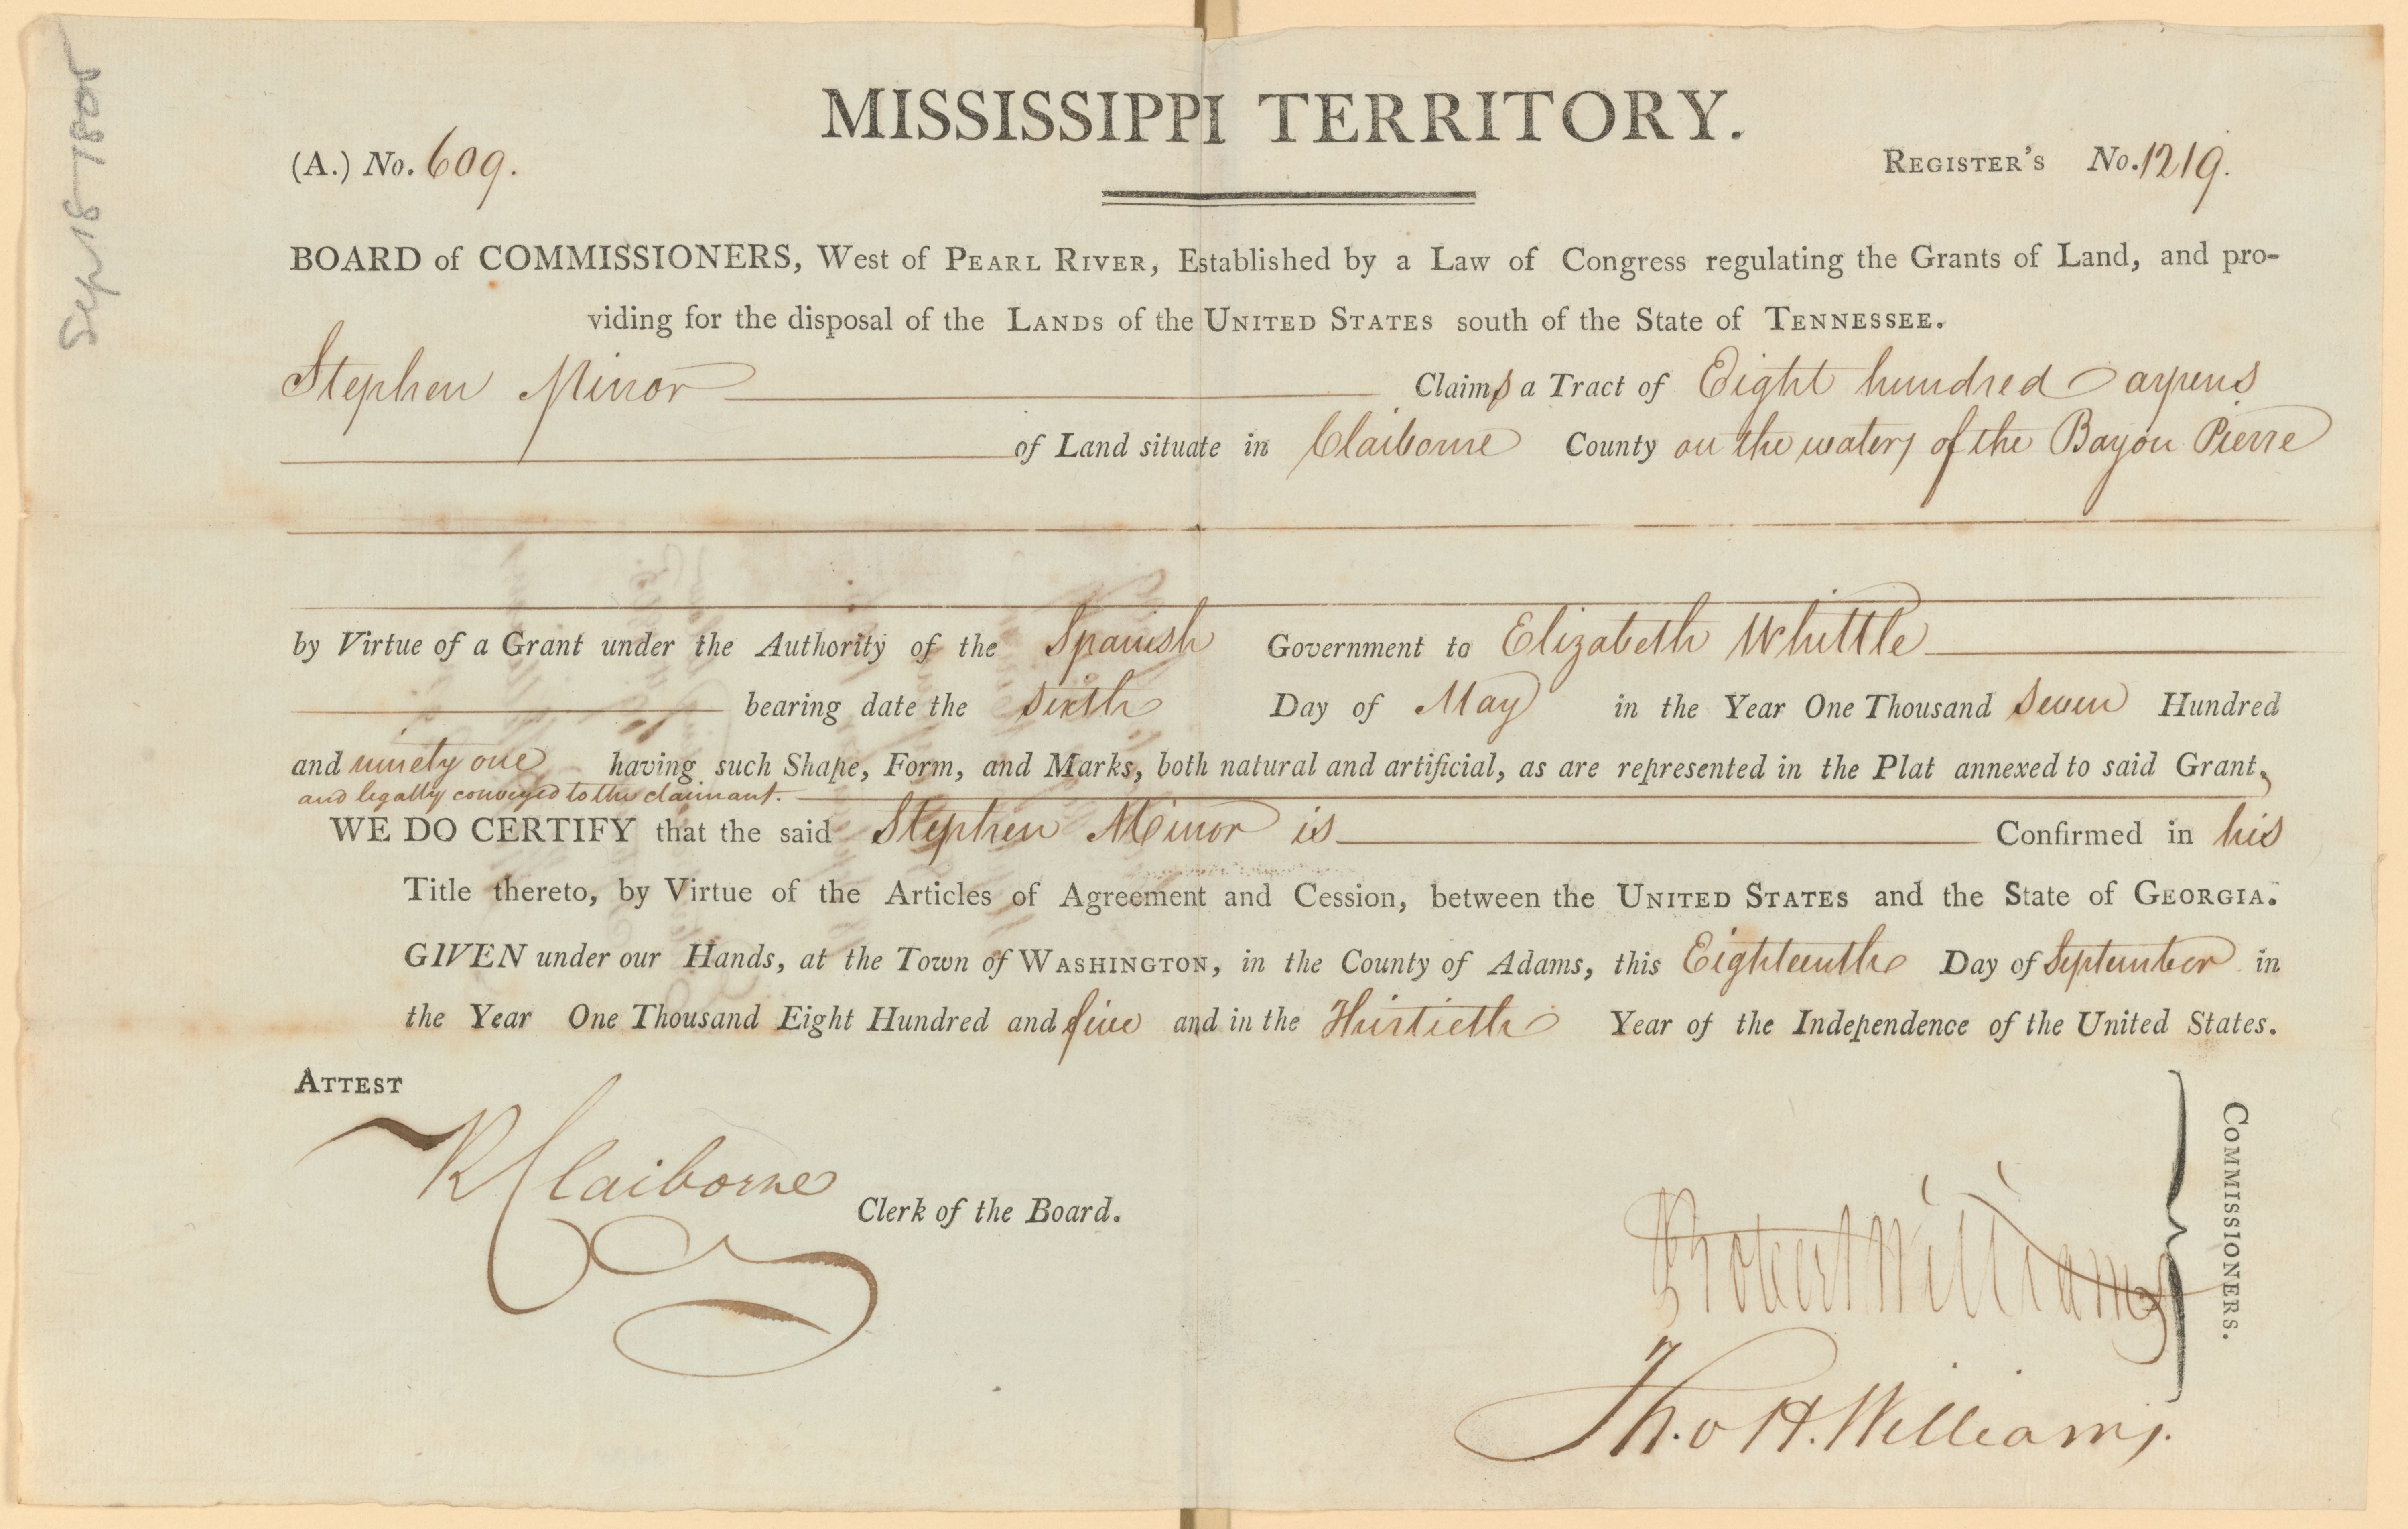 Sep 18 1805
MISSISSIPPI TERRITORY.
(A.) No. 609.
REGISTER'S No. 1219.
BOARD of COMMISSIONERS, West of PEARL RIVER, Established by a Law of Congress regulating the Grants of Land, and pro-
viding for the disposal of the LANDS of the UNITED STATES south of the State of TENNESSEE.
Stephen Minor Claims a Tract of Eight hundred arpens
of Land situate in Claiborne County on the waters of the Bayou Pierre
by Virtue of a Grant under the Authority of the Spanish Government to Elizabeth Whittle
bearing date the sixth Day of May in the Year One Thousand seven Hundred
and ninety one having such Shape, Form, and Marks, both natural and artificial, as are represented in the Plat annexed to said Grant,
and legally conveyed to the claimant.
WE DO CERTIFY that the said Stephen Minor is Confirmed in his
Title thereto, by Virtue of the Articles of Agreement and Cession, between the UNITED STATES and the State of GEORGIA.
GIVEN under our Hands, at the Town of WASHINGTON, in the County of Adams, this Eighteenth Day of September in
the Year One Thousand Eight Hundred and five and in the Thirtieth Year of the Independence of the United States.
ATTEST
R Claiborne Clerk of the Board.
Robert Williams
Tho H. Williams.
COMMISSIONERS.